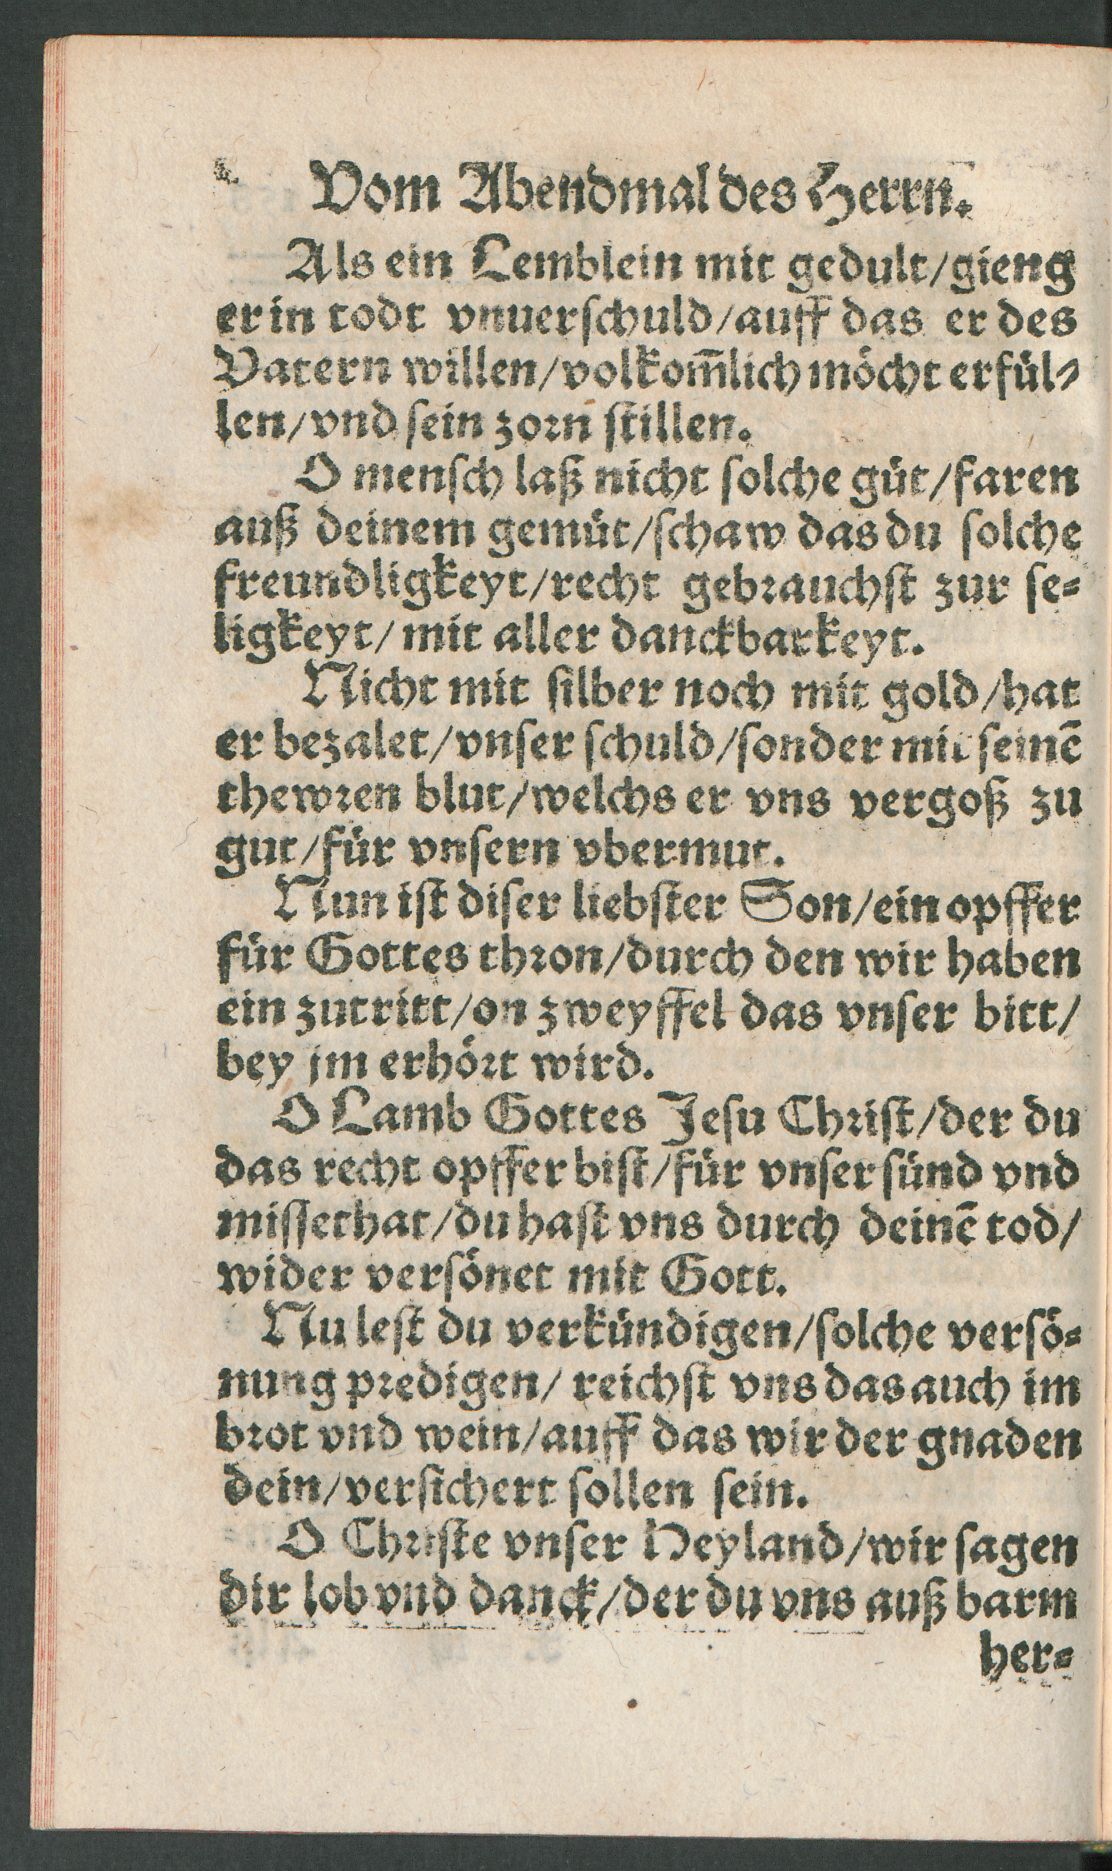 Vom Abendmal des Herrn.
Als ein Lemblein mit gedult/gieng
er in todt vnuerschuld/auff das er des
Vatern willen/volkom̃lich möcht erfül-
len/vnd sein zorn stillen.
O mensch laß nicht solche güt/faren
auß deinem gemüt/schaw das du solche
freundligkeyt/recht gebrauchst zur se-
ligkeyt/mit aller danckbarkeyt.
Nicht mit silber noch mit gold/hat
er bezalet/vnser schuld/sonder mit seinẽ
thewren blut/welchs er vns vergoß zu
gut/für vnsern vbermut.
Nun ist diser liebster Son/ein opffer
für Gottes thron/durch den wir haben
ein zutritt/on zweyffel das vnser bitt/
bey jm erhört wird.
O Lamb Gottes Jesu Christ/der du
das recht opffer bist/für vnser sünd vnd
missethat/du hast vns durch deinẽ tod/
wider versönet mit Gott.
Nu lest du verkündigen/solche versö-
nung predigen/ reichst vns das auch im
brot vnd wein/auff das wir der gnaden
dein/versichert sollen sein.
O Christe vnser Heyland/wir sagen
dir lob vnd danck/der du vns auß barm
her-